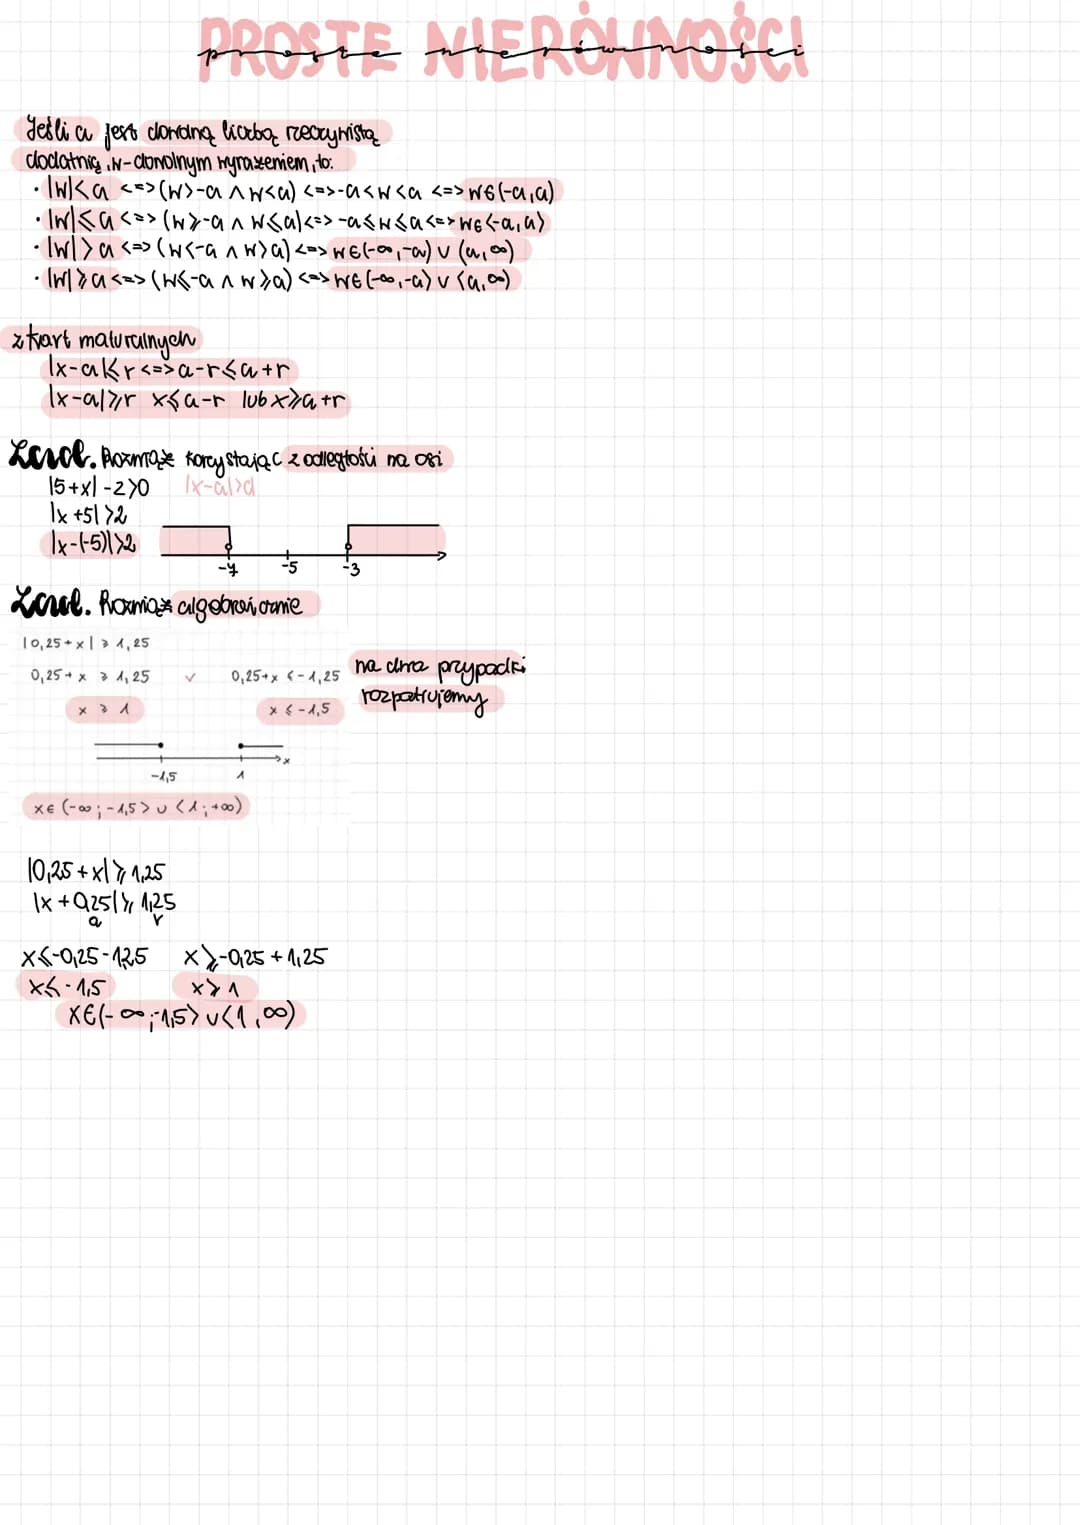 PROSTE NIERÓWNOŚCI
proste nierówności
Jeśli a jest dowolną liczbą rzeczywistą
dodatnią, w-dowolnym wyrażeniem, to:
· |w|<a <=> (w>-a ∧ w<a) <=> -a<w<a <=> w∈(-a,a)
· |w|⩽a <=> (w⩾-a ∧ w⩽a) <=> -a⩽w⩽a <=> w∈<-a,a>
· |w|>a <=> (w<-a ∧ w>a) <=> w∈(-∞,-a) ∪ (a,∞)
· |w|⩾a <=> (w⩽-a ∧ w⩾a) <=> w∈(-∞,-a> ∪ <a,∞)
z kart maturalnych
|x-a|⩽r <=> a-r⩽a+r
|x-a|⩾r x⩽a-r lub x⩾a+r
Zad. Rozwiąż korzystając z odległości na osi
|5+x| -2>0 |x-a|>d
|x+5|>2
|x-(-5)|>2
-7 -5 -3
Zad. Rozwiąż algebraicznie
|0,25+x| ⩾ 1,25
0,25+x ⩾ 1,25 ∨ 0,25+x ⩽ -1,25 na dwa przypadki
x ⩾ 1 x ⩽ -1,5 rozpatrujemy
x
-1,5 1
x∈ (-∞; -1,5> ∪ <1; +∞)
|0,25+x|⩾1,25
|x+0,25|⩾1,25
a r
x⩽-0,25-1,25 x⩾-0,25+1,25
x⩽-1,5 x⩾1
x∈(-∞;-1,5> ∪ <1,∞)